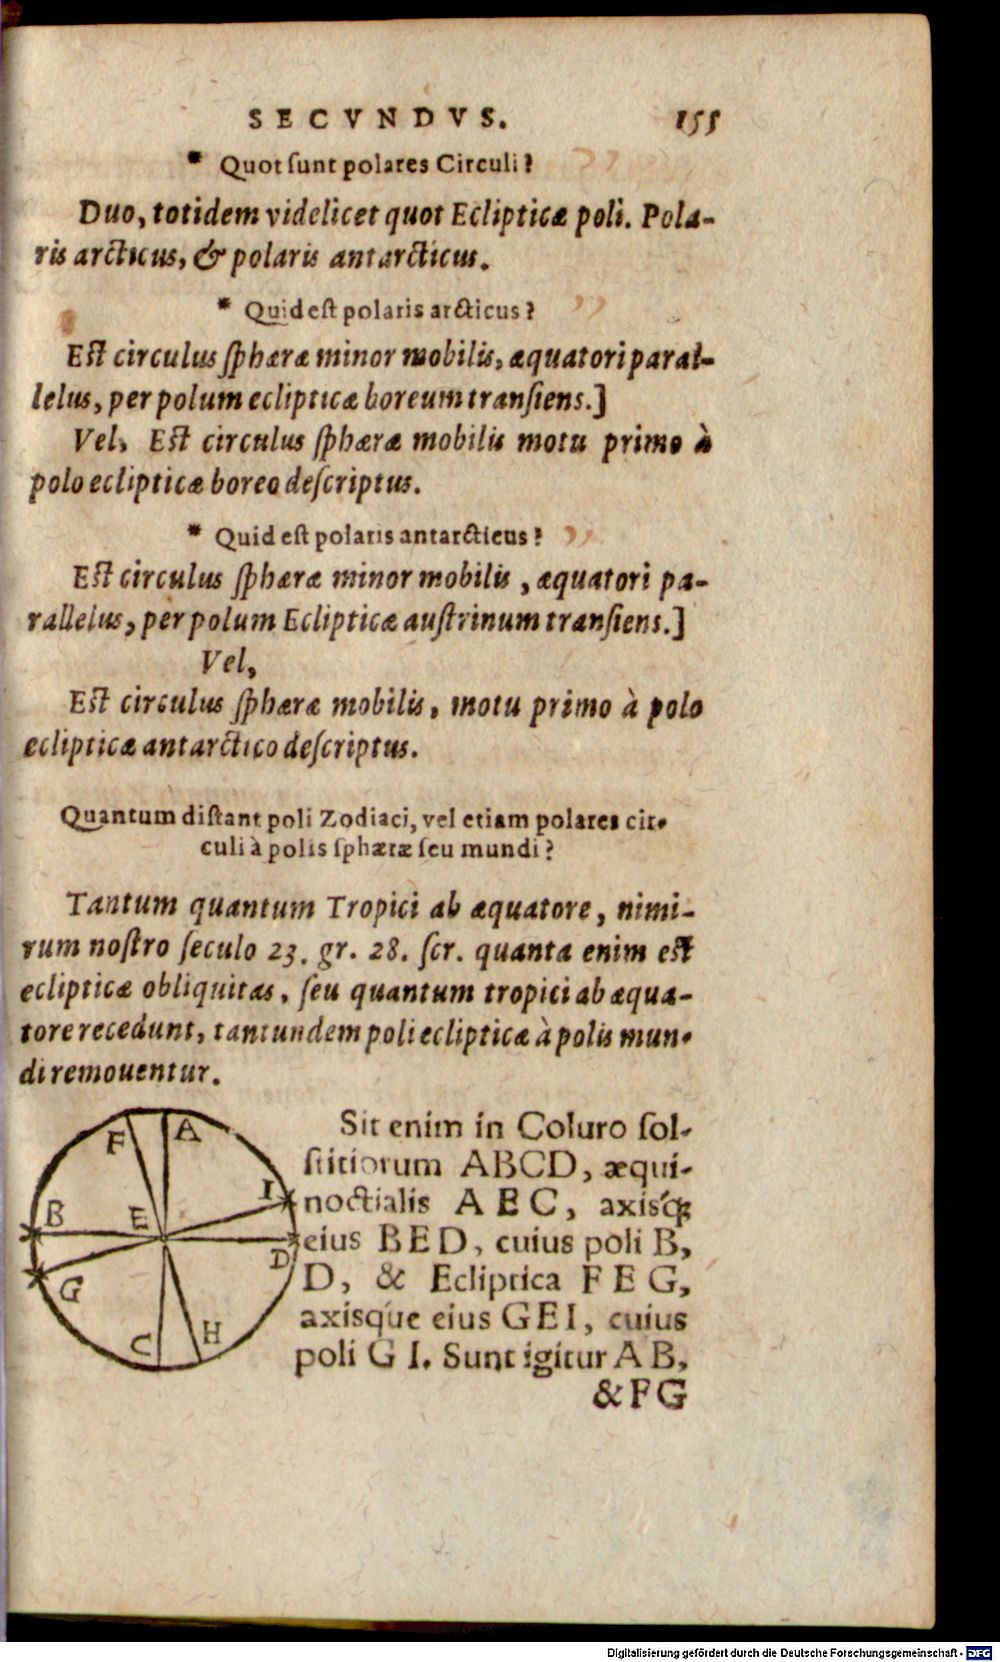 SECVNDVS. 155
* Quot ſunt polares Circuli?
Duo, totidem videlicet quot Eclipticæ poli. Pola-
ris arcticus, & polaris antarcticus.
* Quid eſt polaris arcticus?
Eſt circulus ſphæræ minor mobilis, æquatori paral-
lelus, per polum eclipticæ boreum tranſiens.]
Vel, Eſt circulus ſphæræ mobilis motu primo à
polo eclipticæ boreo deſcriptus.
* Quid eſt polaris antarcticus?
Eſt circulus ſphæræ minor mobilis, æquatori pa-
rallelus, per polum Eclipticæ auſtrinum tranſiens.]
Vel,
Eſt circulus ſphæræ mobilis, motu primo à polo
eclipticæ antarctico deſcriptus.
Quantum diſtant poli Zodiaci, vel etiam polares cir-
culi à polis ſphæræ ſeu mundi?
Tantum quantum Tropici ab æquatore, nimi-
rum noſtro ſeculo 23. gr. 28. ſcr. quanta enim eſt
eclipticæ obliquitas, ſeu quantum tropici ab æqua-
tore recedunt, tantundem poli eclipticæ à polis mun-
di remouentur.
F A
I
B E
D
G
C H
Sit enim in Coluro ſol-
ſtitiorum ABCD, æqui-
noctialis AEC, axisq́;
eius BED, cuius poli B,
D, & Ecliptica FEG,
axisq́ue eius GEI, cuius
poli G I. Sunt igitur A B,
& F G
Digitalisierung gefördert durch die Deutsche Forschungsgemeinschaft - DFG